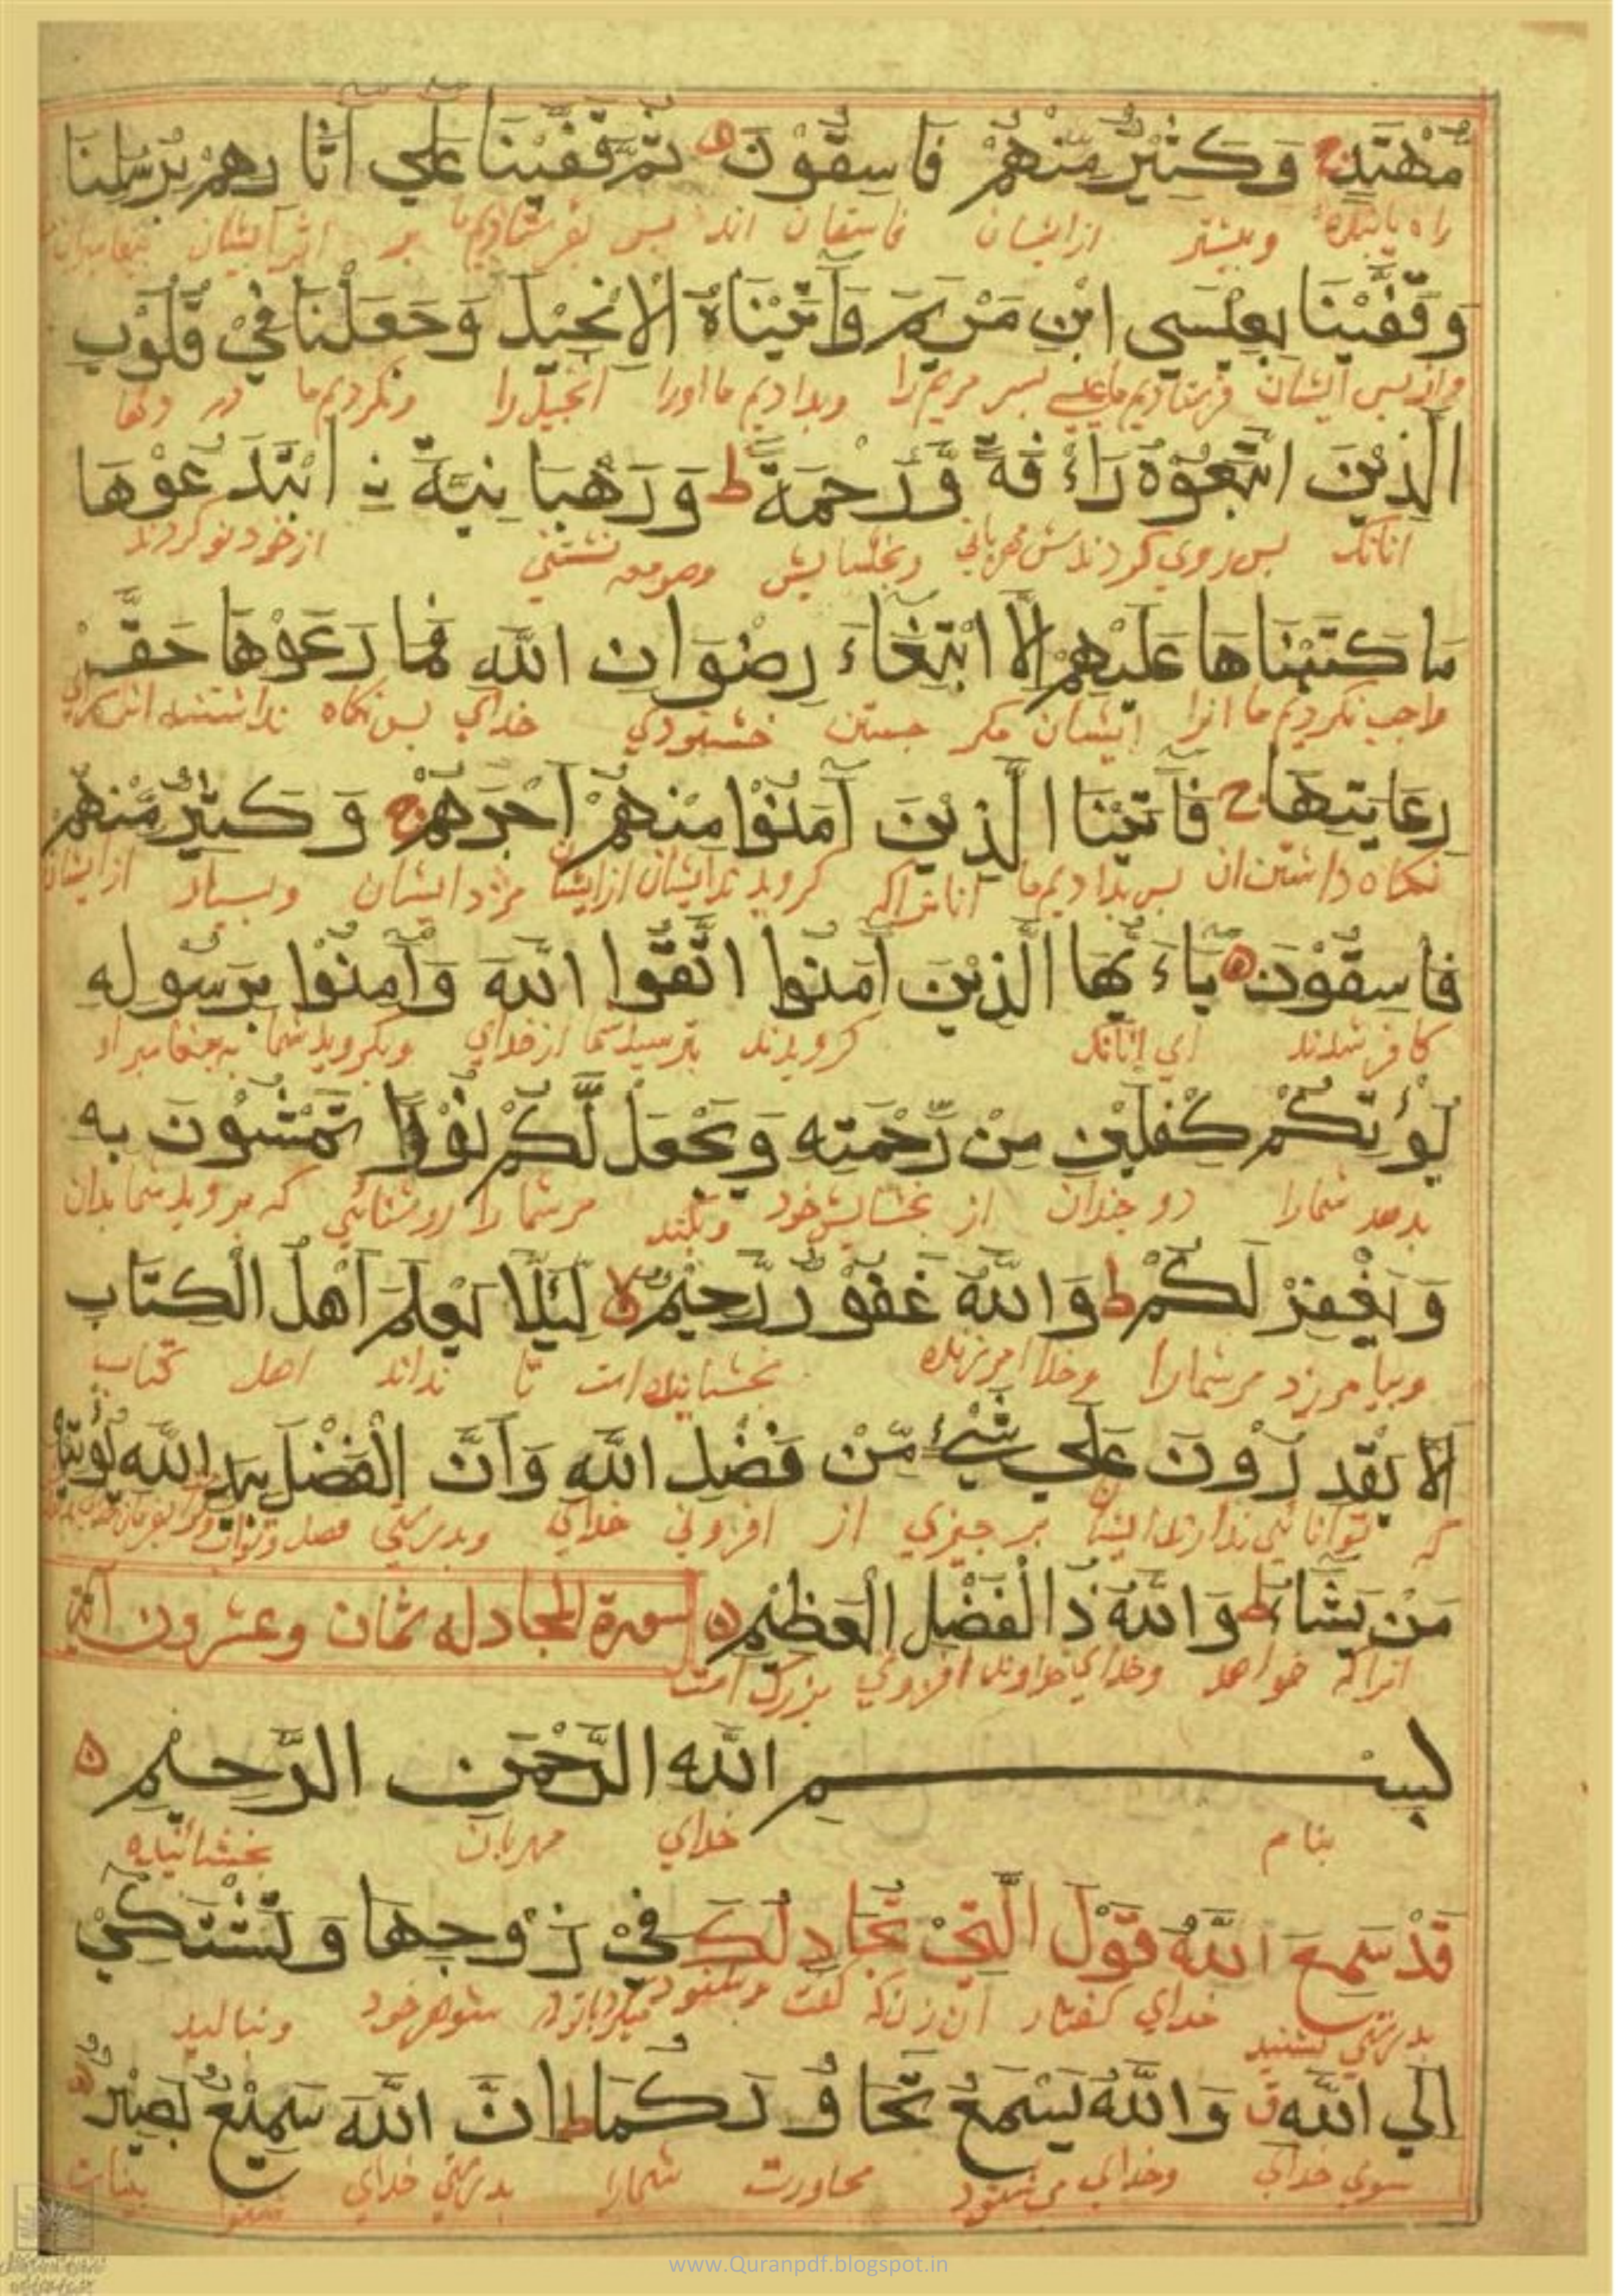 مُّهْتَدٍ ج وَكَثِيْرٌ مِّنْهُمْ فَاسِقُوْنَ ه ثُمَّ قَفَّيْنَا عَلَي آثَارِهِمْ بِرُسُلِنَا
راه يابنده وبيشتر ازايشان فاسقان اند پس بفرستاديم ما بر اثر ايشان پيغامبران
وَقَفَّيْنَا بِعِيْسَي ابْنِ مَرْيَمَ وَآتَيْنَاهُ الْانْجِيْلَ وَجَعَلْنَا فِيْ قُلُوْبِ
واز پس ايشان فرستاديم ما عيسي پسر مريم را وبداديم ما اورا انجيل را وبكرديم ما در دلها
الَّذِيْنَ اتَّبَعُوْهُ رَاْفَةً وَّرَحْمَةً ط وَرَهْبَانِيَّةَ نِ ابْتَدَعُوْهَا
انانك پس روي كردندش مهرباني وبخشايش وصومعه نشستني ازخود نو كردند
مَا كَتَبْنَاهَا عَلَيْهِمْ اِلَّا ابْتِغَاءَ رِضْوَانِ اللّٰهِ فَمَا رَعَوْهَا حَقَّ
واجب نكرديم ما انرا ايشان مكر جستن خشنودي خداي پس نكاه نداشتند
رِعَايَتِهَا ج فَآتَيْنَا الَّذِيْنَ آمَنُوْا مِنْهُمْ اَجْرَهُمْ ج وَكَثِيْرٌ مِّنْهُمْ
نكاه داشتن ان پس بداديم ما انانراكه كرويدند ايشان ازايشان مزد ايشان وبسيار ازايشان
فَاسِقُوْنَ ه يَاءَيُّهَا الَّذِيْنَ آمَنُوا اتَّقُوا اللّٰهَ وَآمِنُوْا بِرَسُولِهِ
كافر شدند اي انانك كرويدند بترسيد شما ازخداي وبكرويد شما به پيغامبر او
يُؤْتِكُمْ كِفْلَيْنِ مِنْ رَّحْمَتِهِ وَيَجْعَلْ لَّكُمْ نُوْرًا تَمْشُوْنَ بِهِ
بدهد شمارا دو چندان از بخشايش خود وبكند مر شما را روشنائي كه برويد شما بدان
وَيَغْفِرْ لَكُمْ ط وَاللّٰهُ غَفُوْرٌ رَّحِيْمٌ لا لِئَلَّا يَعْلَمَ اَهْلُ الْكِتَابِ
وبيامرزد مر شمارا وخدا امرزنده بخشاينده است تا نداند اهل كتاب
اَلَّا يَقْدِرُوْنَ عَلَي شَيْءٍ مِّنْ فَضْلِ اللّٰهِ وَاَنَّ الْفَضْلَ بِيَدِ اللّٰهِ يُؤْتِيْهِ
كه توانائي ندارند ايشان بر چيزي از افزوني خداي وبدرستي فضل
مَنْ يَّشَاءُ ط وَاللّٰهُ ذُالْفَضْلِ الْعَظِيْمِ ه سورة المجادله ثمان وعشرون آية
انراكه خواهد وخداي خداوند افزوني بزرك است
بِسْمِ اللّٰهِ الرَّحْمَنِ الرَّحِيْمِ ه
بنام خداي مهربان بخشائينده
قَدْ سَمِعَ اللّٰهُ قَوْلَ الَّتِيْ تُجَادِلُكَ فِيْ زَوْجِهَا وَتَشْتَكِيْ
بدرستي بشنيد خداي كفتار ان زن كه شوهر خود وبناليد
اِلَي اللّٰهِ ق وَاللّٰهُ يَسْمَعُ تَحَاوُرَكُمَا ط اِنَّ اللّٰهَ سَمِيْعٌ بَصِيْرٌ ه
سوي خداي وخداي مي شنود محاورت شمارا بدرستي خداي شنوا بيناست
www.Quranpdf.blogspot.in